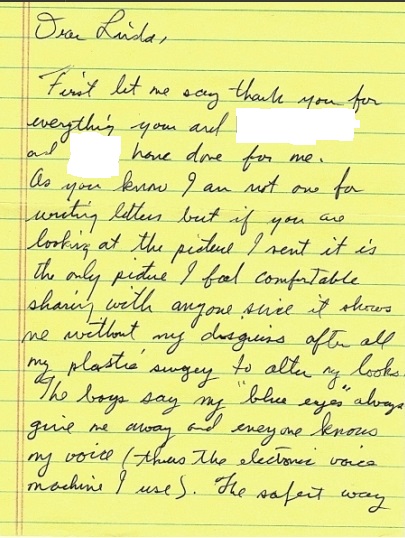 Dear Linda,
First let me say thank you for
everything you and
and have done for me.
As you know I am not one for
writing letters but if you are
looking at the picture I sent it is
the only picture I feel comfortable
sharing with anyone since it shows
me without my disguises after all
my plastic surgery to alter my looks.
The boys say my "blue eyes" always
give me away and everyone knows
my voice (thus the electronic voice
machine I use). The safest way